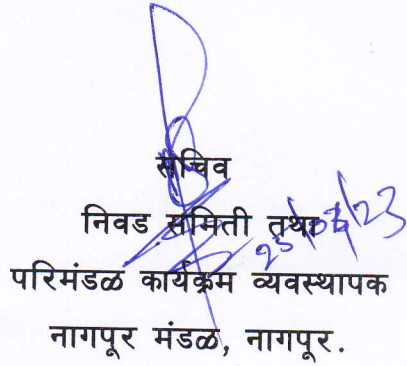 सचिव
निवड समिती तथा
परिमंडळ कार्यक्रम व्यवस्थापक
नागपूर मंडळ, नागपूर.